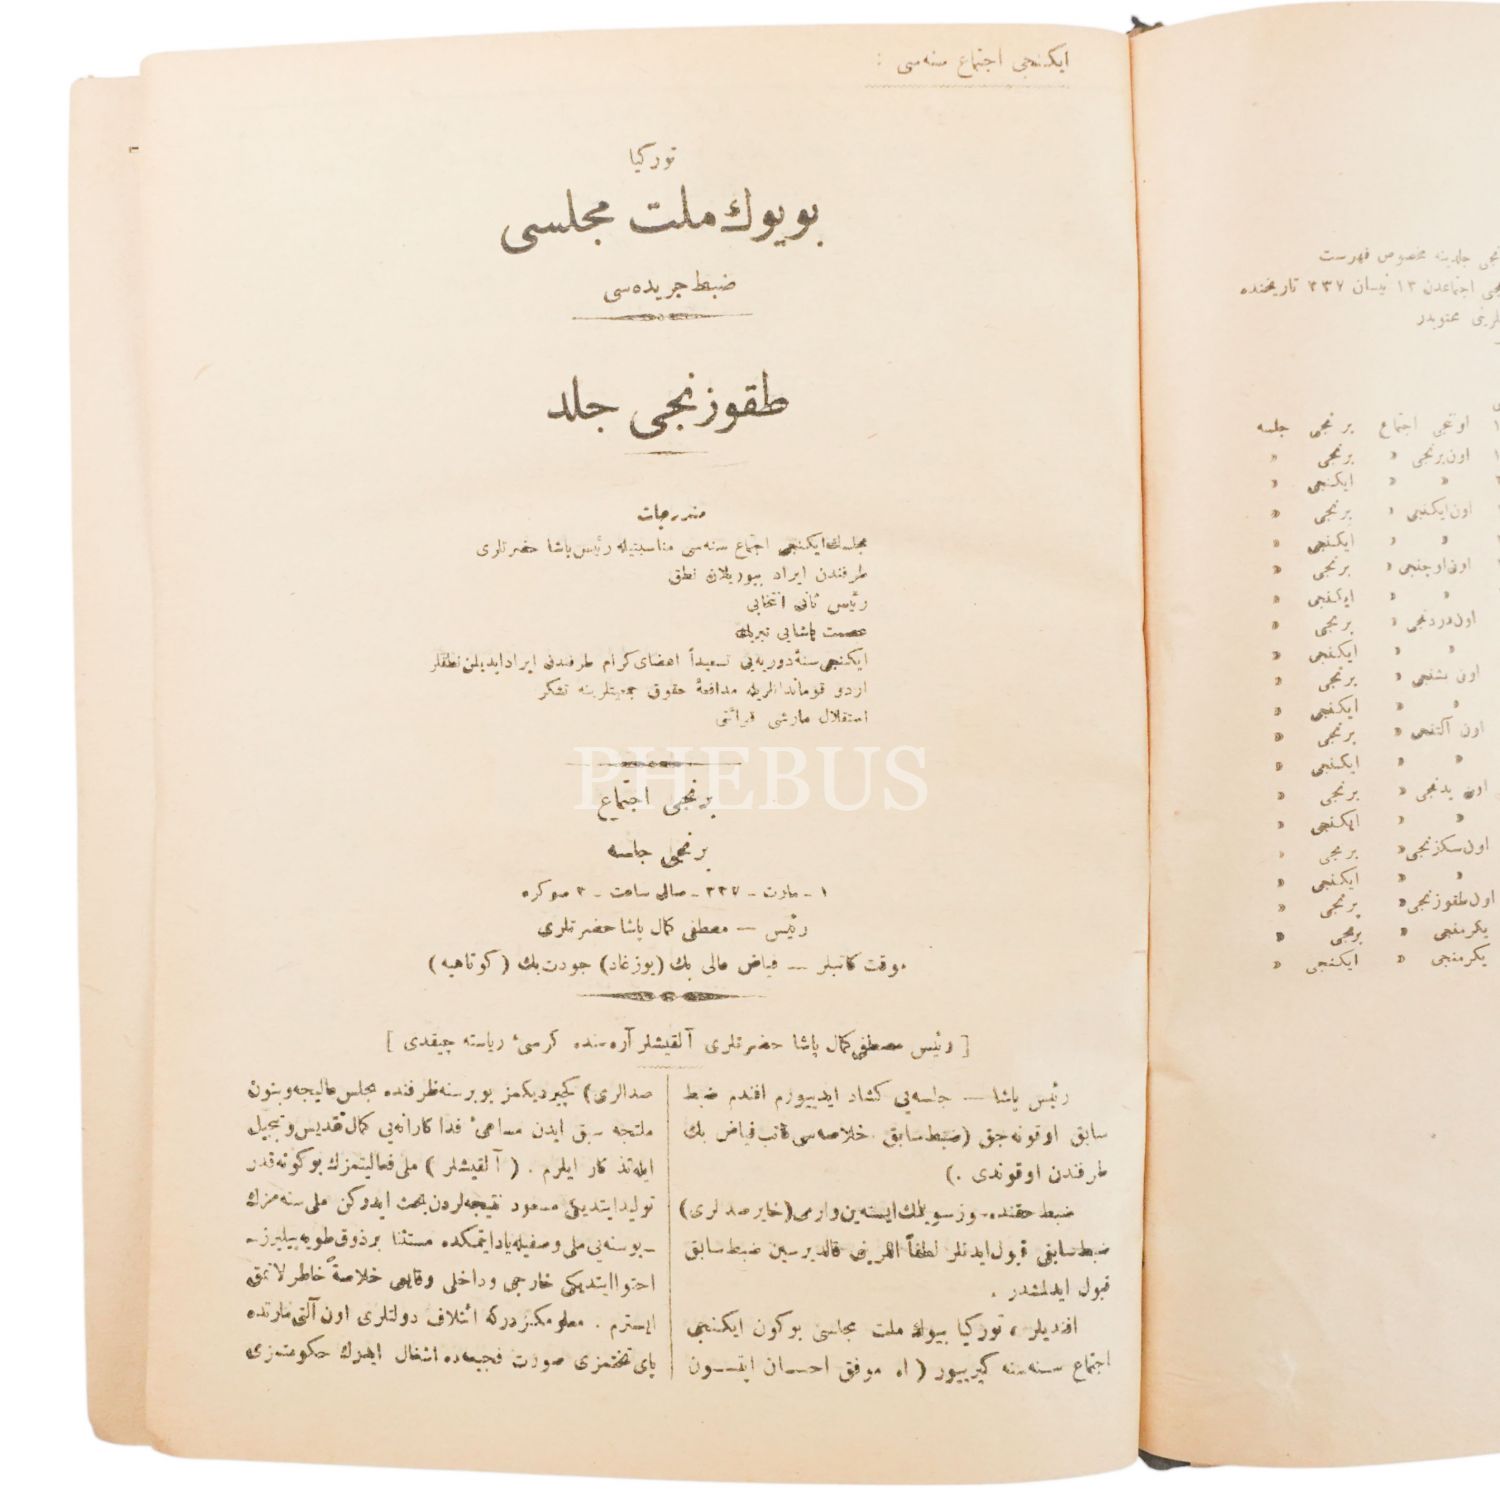 ایكنجی اجتماع سنه‌سی :
توركیا
بویوك ملت مجلسی
ضبط جریده‌سی
طقوزنجی جلد
مندرجات
مجلسك ایكنجی اجتماع سنه‌سی مناسبتیله رئیس پاشا حضرتلری
طرفندن ایراد بیوریلان نطق
رئیس ثانی انتخابی
عصمت پاشایی تبریك
ایكنجی سنهٔ دوریه‌یی تسعیداً اعضای كرام طرفندن ایراد ایدیلن نطقلر
اردو قوماندانلریله مدافعهٔ حقوق جمعیتلرینه تشكر
استقلال مارشی قرائتی
PHEBUS
برنجی اجتماع
برنجی جلسه
١ - مارت - ٣٣٧ - صالی ساعت - ٢ صوكره
رئیس — مصطفی كمال پاشا حضرتلری
موقت كاتبلر — فیاض عالی بك (یوزغاد) جودت بك (كوتاهیه)
[ رئیس مصطفی كمال پاشا حضرتلری آلقیشلر آره‌سنده كرسیٔ ریاسته چیقدی ]
رئیس پاشا — جلسه‌یی كشاد ایدییورم افندم ضبط
سابق اوقونه‌جق (ضبط سابق خلاصه‌سی كاتب فیاض بك
طرفندن اوقوندی .)
ضبط حقنده سوز سویلمك ایسته‌ین وارمی (خایر صدالری)
ضبط سابقی قبول ایدنلر لطفاً اللرینی قالدیرسین ضبط سابق
قبول ایدلمشدر .
افندیلر ، توركیا بیوك ملت مجلسی بوكون ایكنجی
اجتماع سنه‌سنه كیرییور ( الله موفق احسان ایتسون
صدالری) كچیردیكمز بو بر سنه ظرفنده مجلس عالیجه و بتون
ملتجه سبق ایدن مساعیٔ فداكارانه‌یی كمال تقدیس و تبجیل
ایله تذكار ایلرم . ( آلقیشلر ) ملی فعالیتمزك بوكونه قدر
تولید ایتدیكی مسعود نتیجه‌لردن بحث ایدركن ملی سنه‌مزك
- بو سنه‌یی ملی وصفیله یاد ایتمكده مستثنا بر ذوق طویه‌بیلیرز -
احتوا ایتدیكی خارجی و داخلی وقایعی خلاصةً خاطرلاتمق
ایسترم . معلومكزدركه ائتلاف دولتلری اون آلتی مارتده
پای تختمزی صورت فجیعه‌ده اشغال ایدرك حكومتمزی
نجی جلدینه مخصوص فهرست
نجی اجتماعدن ١٣ نیسان ٣٣٧ تاریخنده
لرینی محتویدر
اوننجی اجتماع برنجی جلسه
اون برنجی » برنجی »
» » ایكنجی »
اون ایكنجی » برنجی »
» » ایكنجی »
اون اوچنجی » برنجی »
» » ایكنجی »
اون دردنجی » برنجی »
» » ایكنجی »
اون بشنجی » برنجی »
» » ایكنجی »
اون آلتنجی » برنجی »
» » ایكنجی »
اون یدنجی » برنجی »
» » ایكنجی »
اون سكزنجی » برنجی »
» » ایكنجی »
اون طقوزنجی » برنجی »
یكرمنجی » برنجی »
یكرمنجی » ایكنجی »